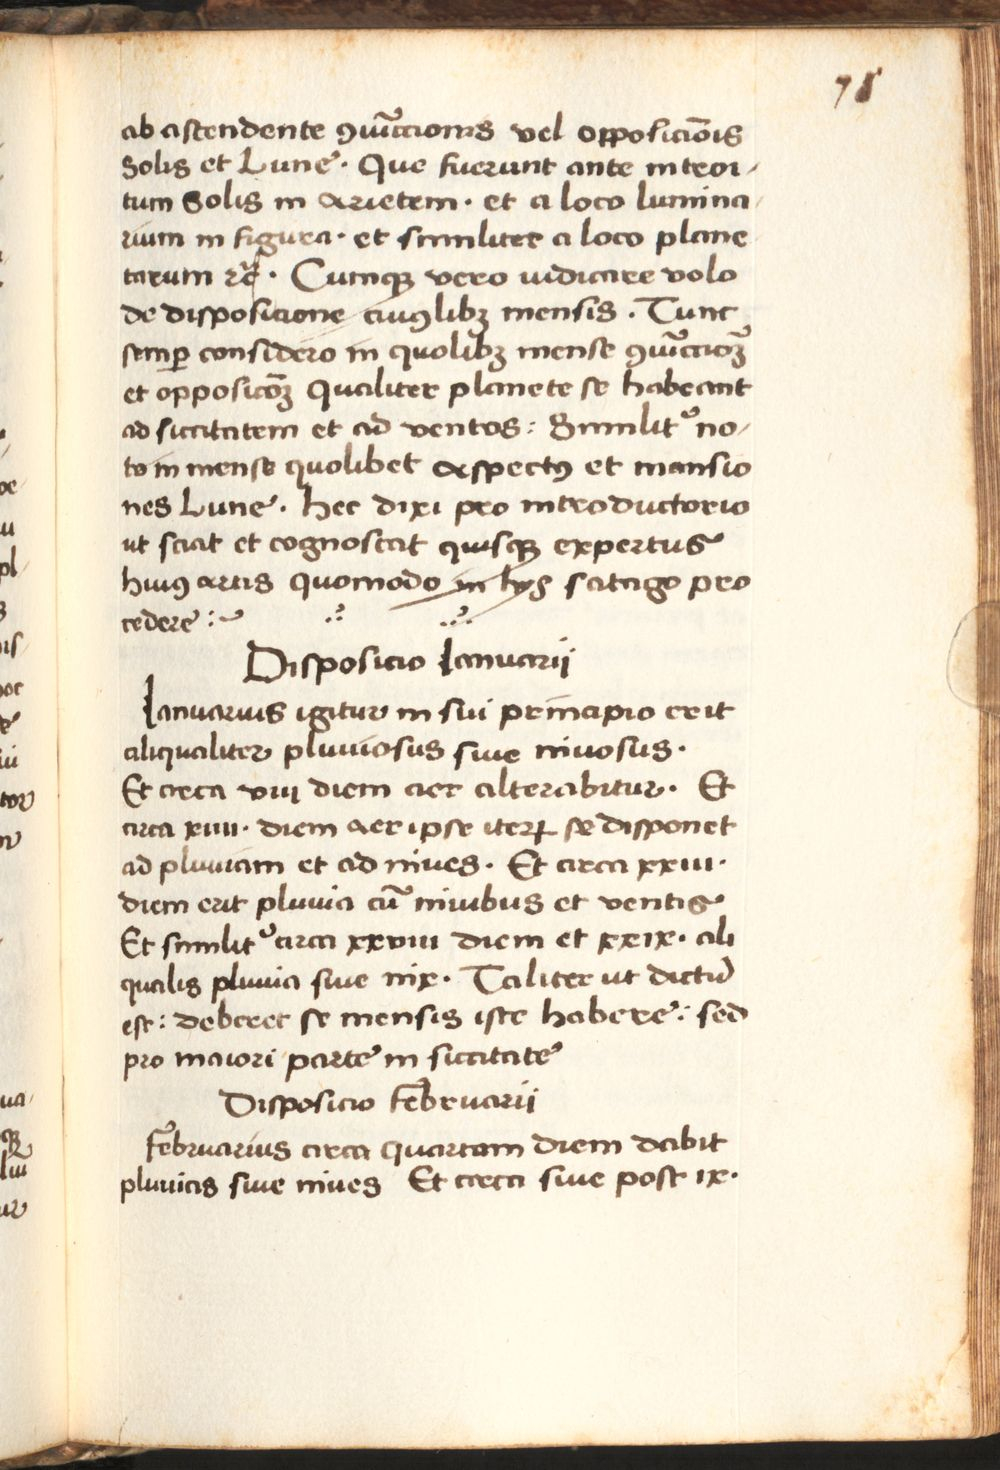 75
ab ascendente ꝯiu̅ccionis vel opposicio̅is
Solis et Lune. Que fuerunt ante introi-
tum Solis in Arietem. et a loco lumina-
rium in figura. et similiter a loco plane
tarum ⁊c̅. Cumqꝫ vero iudicare volo
de disposicione cuiuꝯlibꝫ mensis. Tunc
semꝑ considero in quolibꝫ mense ꝯiu̅ccio̅ꝫ
et opposico̅ꝫ Qualiter planete se habeant
ad siccitatem et ad ventos: Similitꝰ no-
to in mense quolibet Aspectꝯ et mansio
nes Lune. hec dixi pro introductorio
ut sciat et cognoscat quisqꝫ expertus
huiꝯ artis quomodo in hys satago pro
cedere:~
Disposicio Ianuarii
Ianuarius igitur in sui principio erit
aliqualiter pluviosus sive nivosus.
Et circa viii diem aer alterabitur. Et
circa xiiii. diem aer ipse iterꝝ se disponet
ad pluviam et ad nives. Et circa xxiii.
diem erit pluvia cu̅ nivibus et ventis
Et similitꝰ circa xxviii diem et xxix. ali
qualis pluvia sive nix. Taliter ut dictu̅
est: deberet se mensis iste habere: sed
pro maiori parte in siccitate
Disposicio februarii
Februarius circa quartam diem dabit
pluvias sive nives Et circa sive post ix.